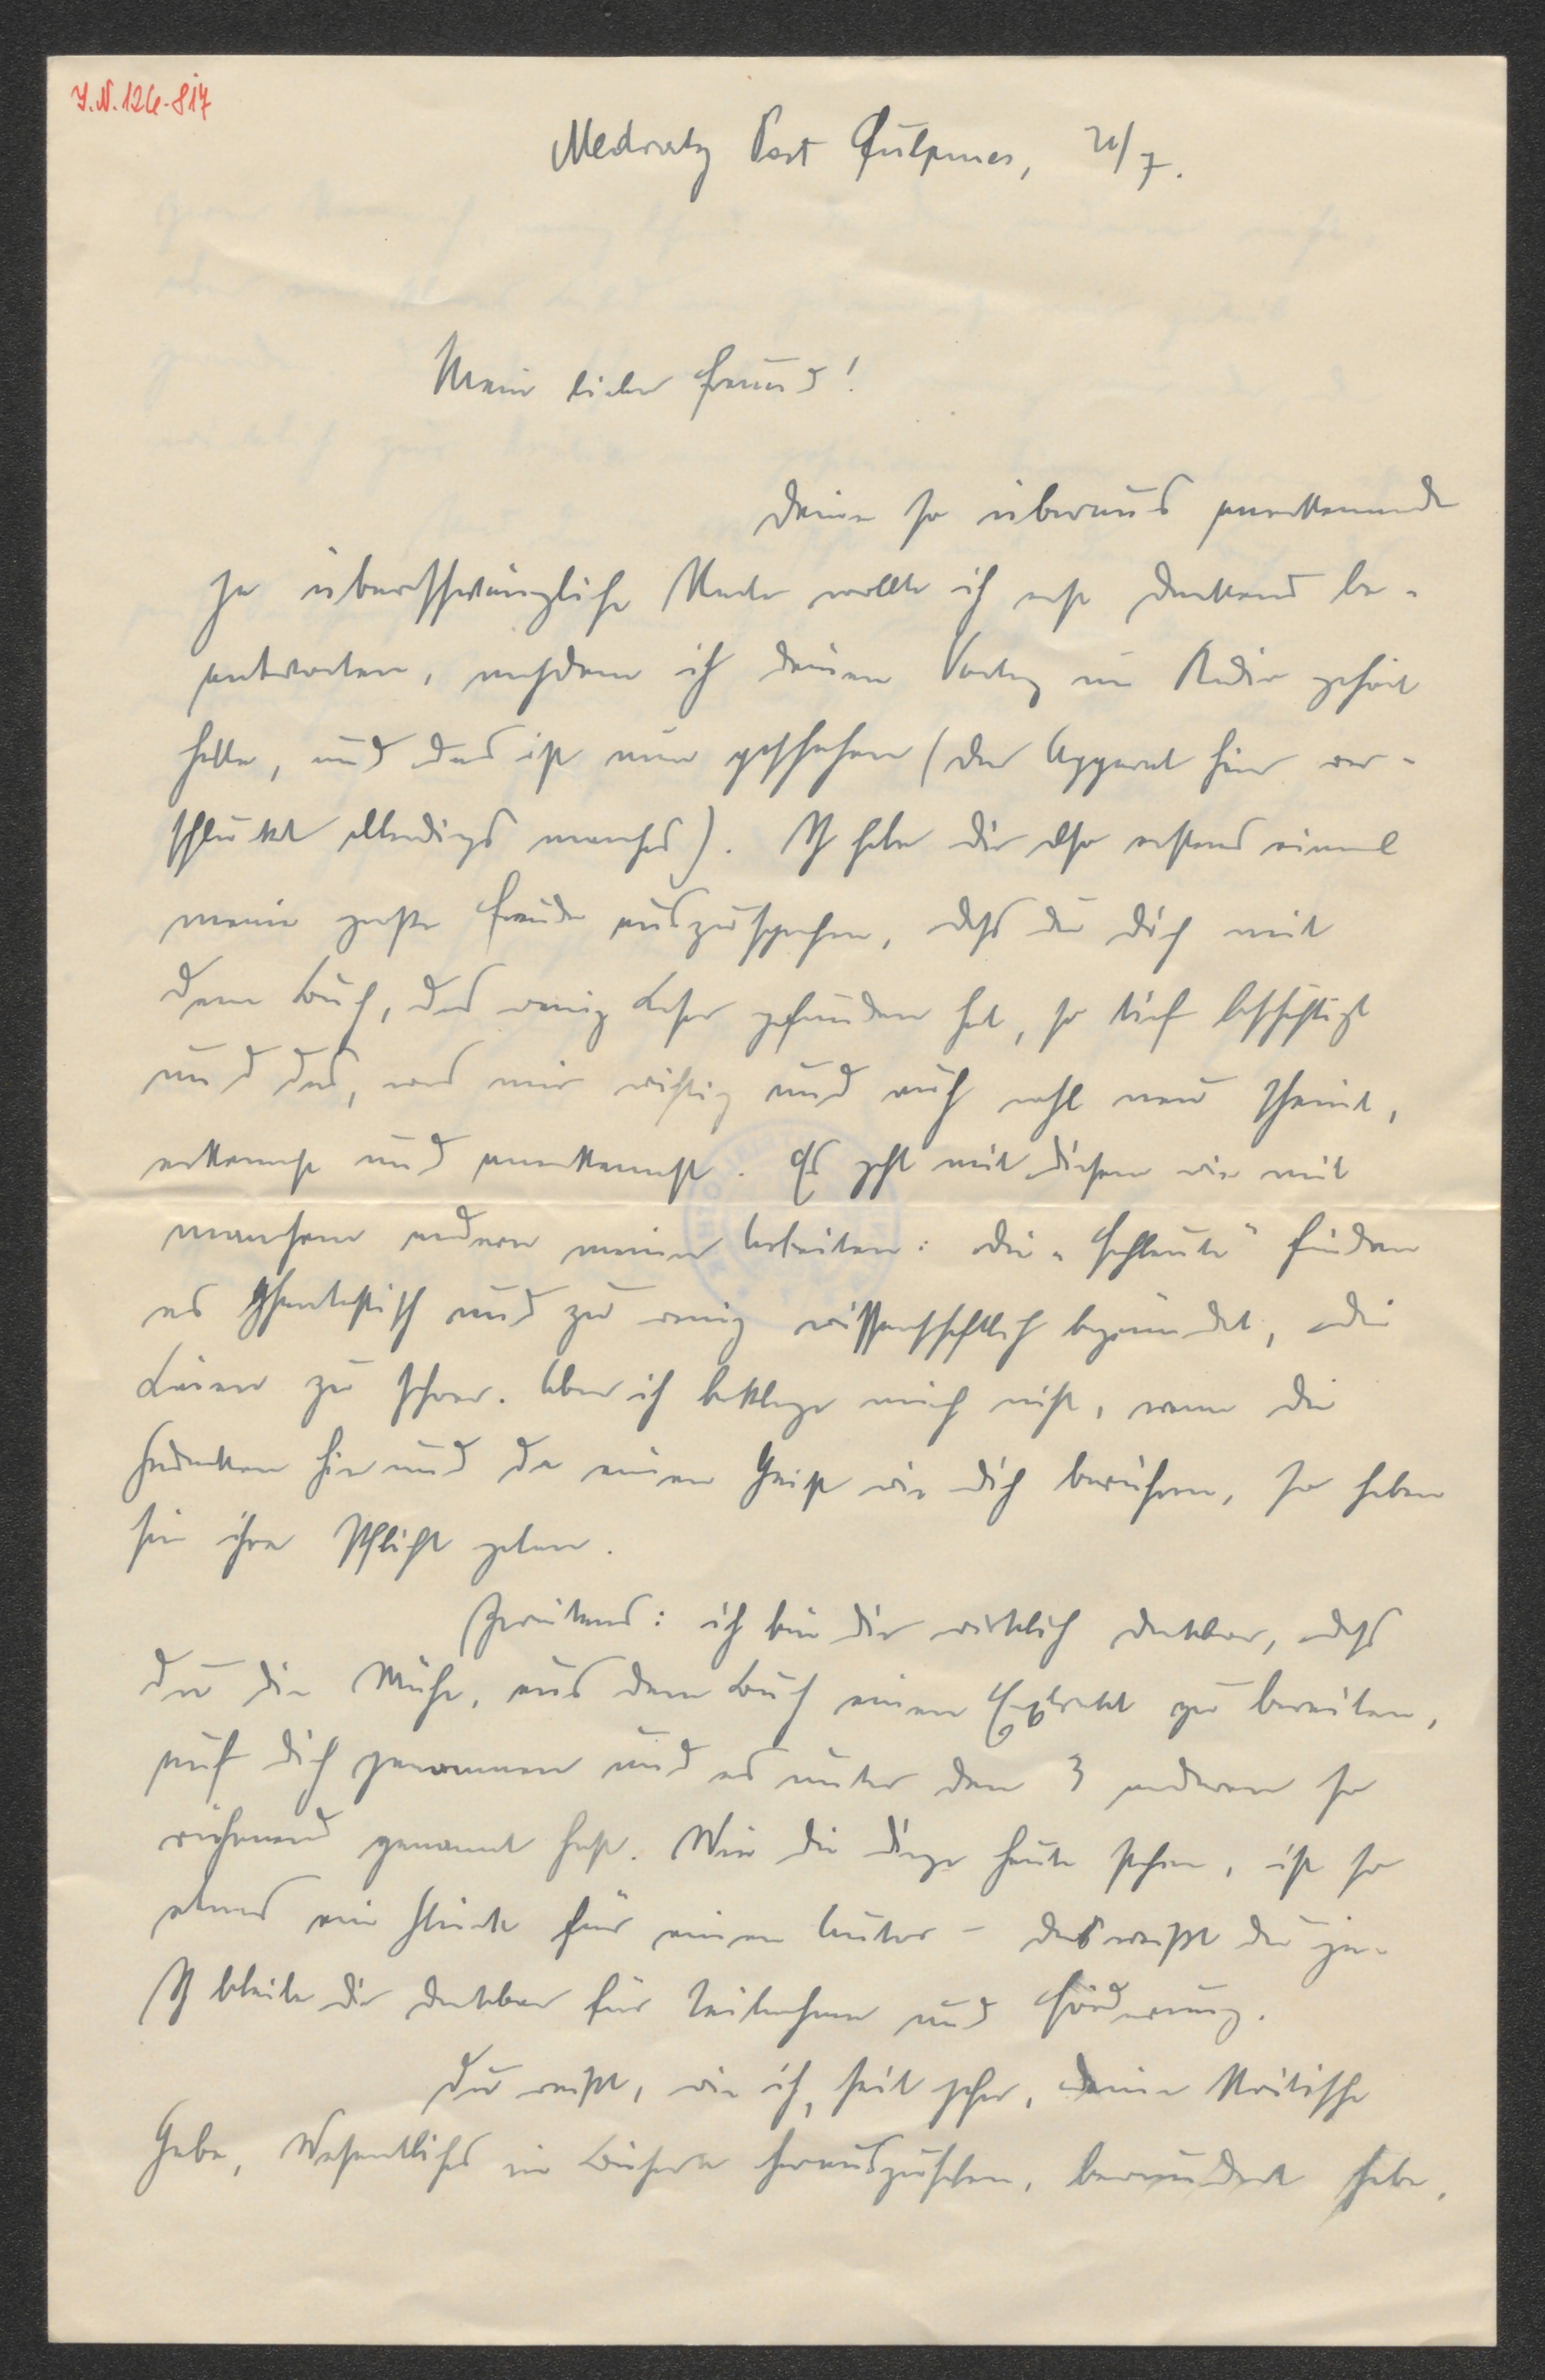 J.N. 126.817
Medratz Post Fulpmes, 21/7.
Mein lieber Freund!
Deine so überaus anerkennende
ja überschwängliche Karte wollte ich erst dankend be-
antworten, nachdem ich deinen Vortrag im Radio gehört
hatte, und das ist nun geschehen (der Apparat hier ver-
schluckt allerdings manches). Ich habe dir also erstens einmal
meine große Freude auszusprechen, dass du dich mit
dem Buch, das wenig Leser gefunden hat, so tief beschäftigt
und das, was mir wichtig und auch wohl neu scheint,
erkennst und anerkennst. Es geht mit diesem wie mit
manchem andern meiner Arbeiten: die „Fachleute“ finden
es phantastisch und zu wenig wissenschaftlich begründet, die
Laien zu schwer. Aber ich beklage mich nicht, wenn die
Gedanken hie und da einen Geist wie dich berühren, so haben
sie ihre Pflicht getan.
Zweitens: ich bin dir wirklich dankbar, dass
du die Mühe, aus dem Buch einen Extrakt zu bereiten,
auf dich genommen und es unter den 3 anderen so
rühmend genannt hast. Wie die Dinge heute stehen, ist so
etwas ein Glück für einen Autor – das weißt du ja.
Ich bleibe dir dankbar für Teilnahme und Förderung.
Du weißt, wie ich, seit jeher, deine kritische
Gabe, Wesentliches in Büchern herauszusehen, bewundert habe,